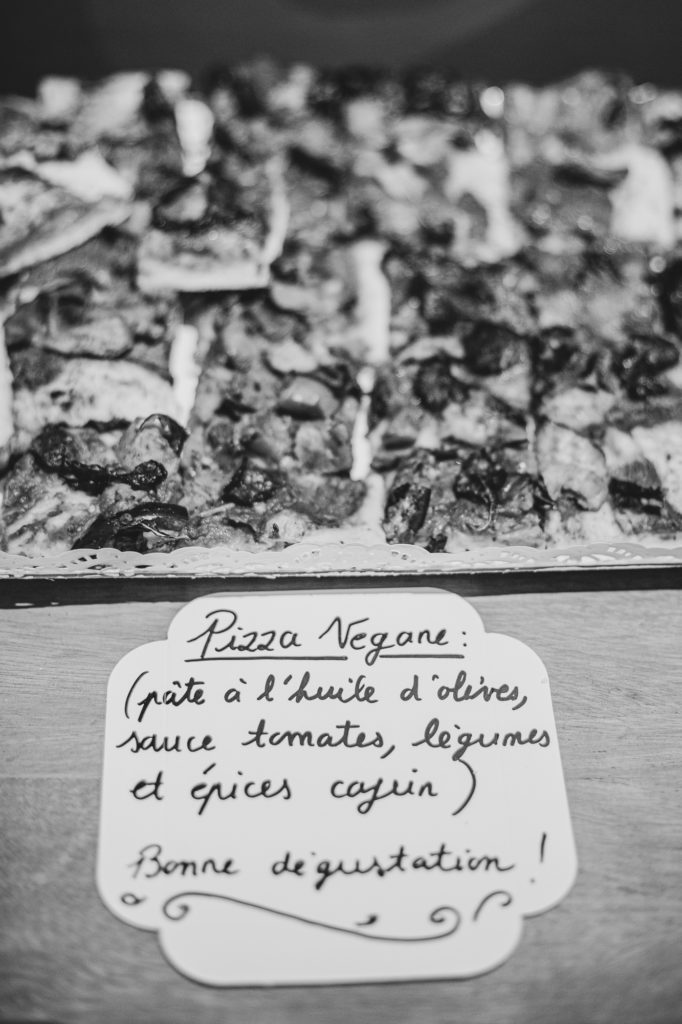 Pizza Vegane :
(pâte à l'huile d'olives,
sauce tomates, légumes
et épices cajun)
Bonne dégustation !